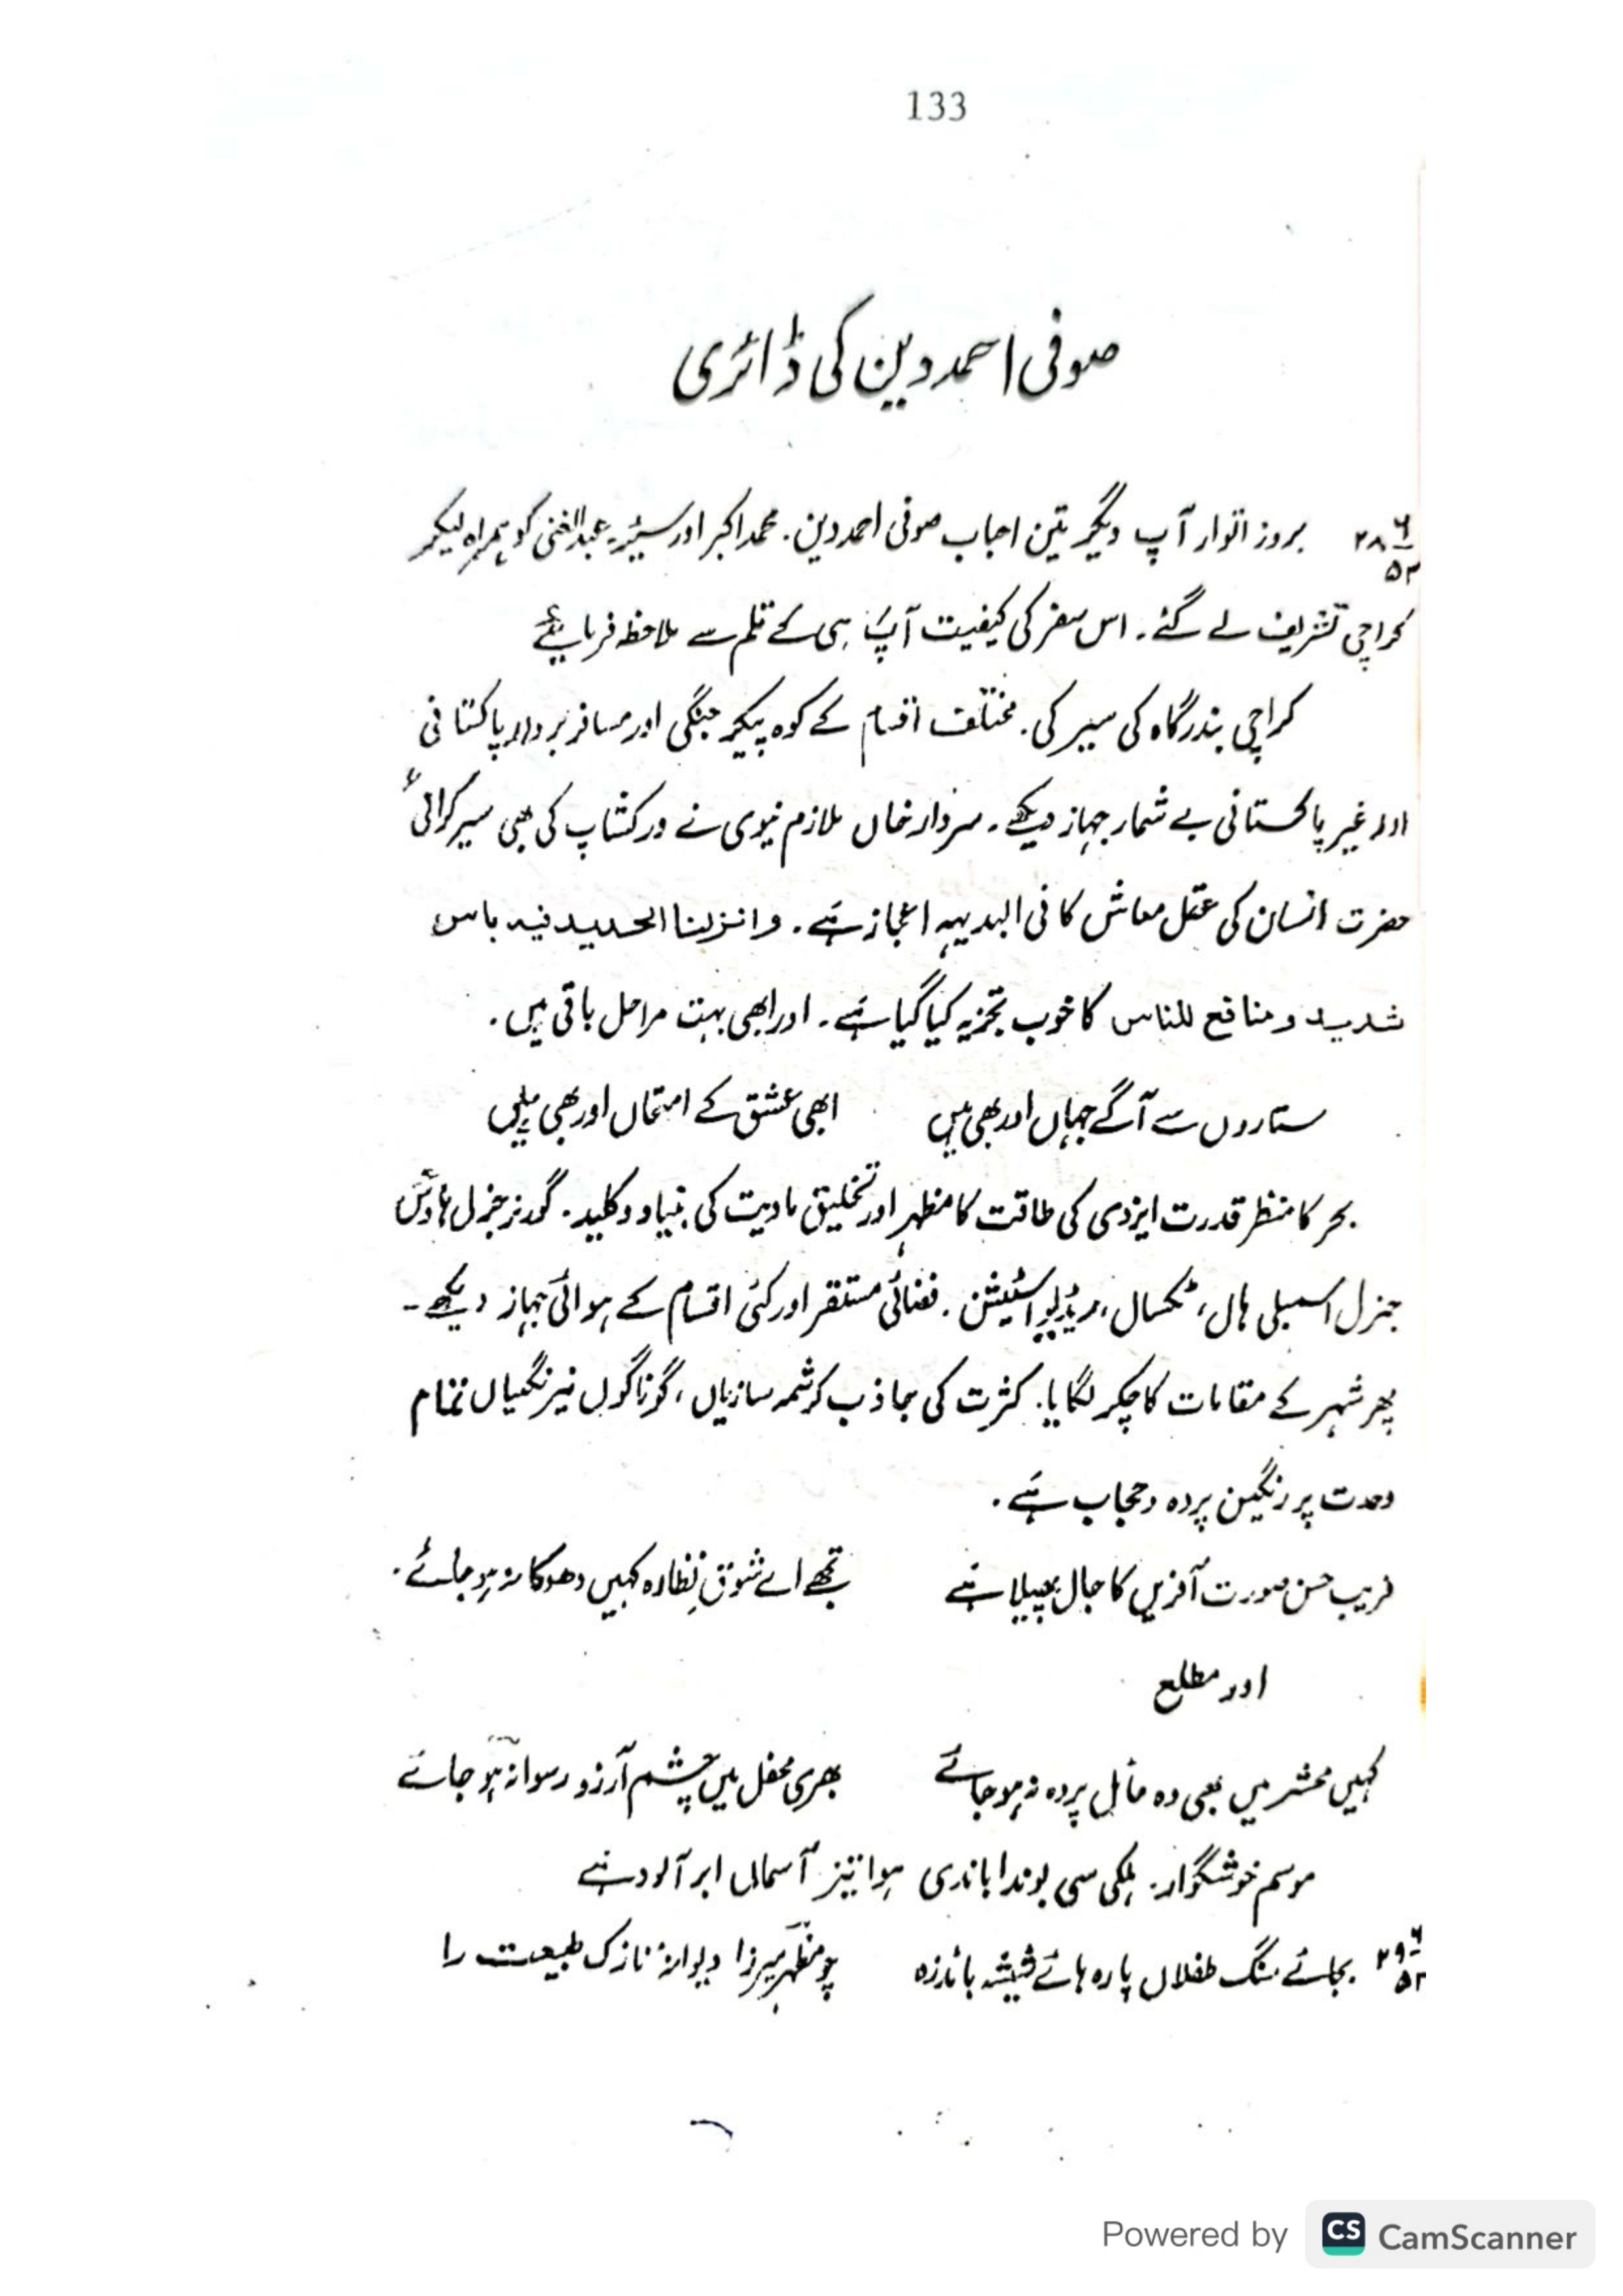 133
صوفی احمد دین کی ڈائری
۲۸ ۶ ۵۲ بروز اتوار آپ دیگر تین احباب صوفی احمد دین. محمد اکبر اور عبدالغنی کو ہمراہ لیکر
کراچی تشریف لے گئے۔ اس سفر کی کیفیت آپؒ ہی کے قلم سے ملاحظہ فرمایئے
کراچی بندرگاہ کی سیر کی. مختلف اقسام کے کوہ پیکر جنگی اور مسافر بردار پاکستانی
اور غیر پاکستانی بے شمار جہاز دیکھے۔ سردار خاں ملازم نیوی نے ورکشاپ کی بھی سیر کرائی
حضرت انسان کی عقل معاش کا فی البدیہہ اعجاز ہے. وانزلنا الحدید فیہ باس
شدید و منافع للناس کا خوب تجزیہ کیا گیا ہے۔ اور ابھی بہت مراحل باقی ہیں.
ستاروں سے آگے جہاں اور بھی ہیں ابھی عشق کے امتحاں اور بھی ہیں
بحر کا منظر قدرت ایزدی کی طاقت کا مظہر اور تخلیق مادیت کی بنیاد و کلید. گورنر جنرل ہاؤس
جنرل اسمبلی ہال، ٹکسال، ریڈیو اسٹیشن. فضائی مستقر اور کئی اقسام کے ہوائی جہاز دیکھے۔
پھر شہر کے مقامات کا چکر لگایا. کثرت کی جاذب کرشمہ سازیاں، گوناگوں نیرنگیاں تمام
وحدت پر رنگین پردہ و حجاب ہے.
فریب حسن صورت آفریں کا جال پھیلا ہے تجھے اے شوق نظارہ کہیں دھوکا نہ ہو جائے.
اور مطلع
کہیں محشر میں بھی وہ مائل پردہ نہ ہو جائے بھری محفل میں چشم آرزو رسوا نہ ہو جائے
موسم خوشگوار. ہلکی سی بوندا باندی ہوا تیز آسماں ابر آلود ہے
۲۹ ۶ ۵۲ بجائے سنگ طفلاں پارہ ہائے شیشہ باندازہ چو مظہر میرزا دیوانۂ نازک طبیعت را
Powered by CS CamScanner